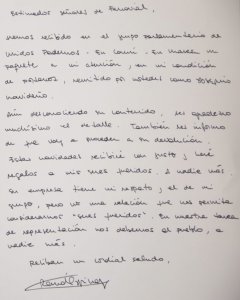 Estimados señores de Renovel,
Hemos recibido en el grupo parlamentario de
Unidos Podemos - En Comú - En Marea un
paquete a mi atención, en mi condición
de portavoz, remitido por ustedes como obsequio
navideño.
Aún desconociendo su contenido, les agradezco
muchísimo el detalle. También les informo
de que voy a proceder a su devolución.
Estas navidades recibiré con gusto y haré
regalos a mis seres queridos. A nadie más.
Su empresa tiene mi respeto, y el de mi
grupo, pero no una relación que nos permita
considerarnos "seres queridos". En nuestra tarea
de representación nos debemos al pueblo, a
nadie más.
Reciban un cordial saludo,